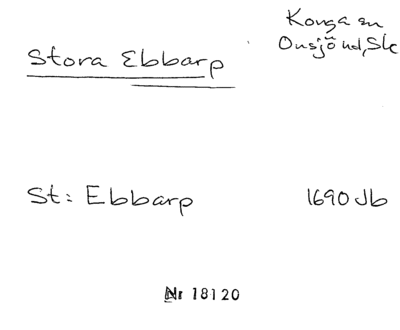 Konga sn
Stora Ebbarp
Onsjö hd, Sk
St: Ebbarp 1690 Jb
Nr 18120